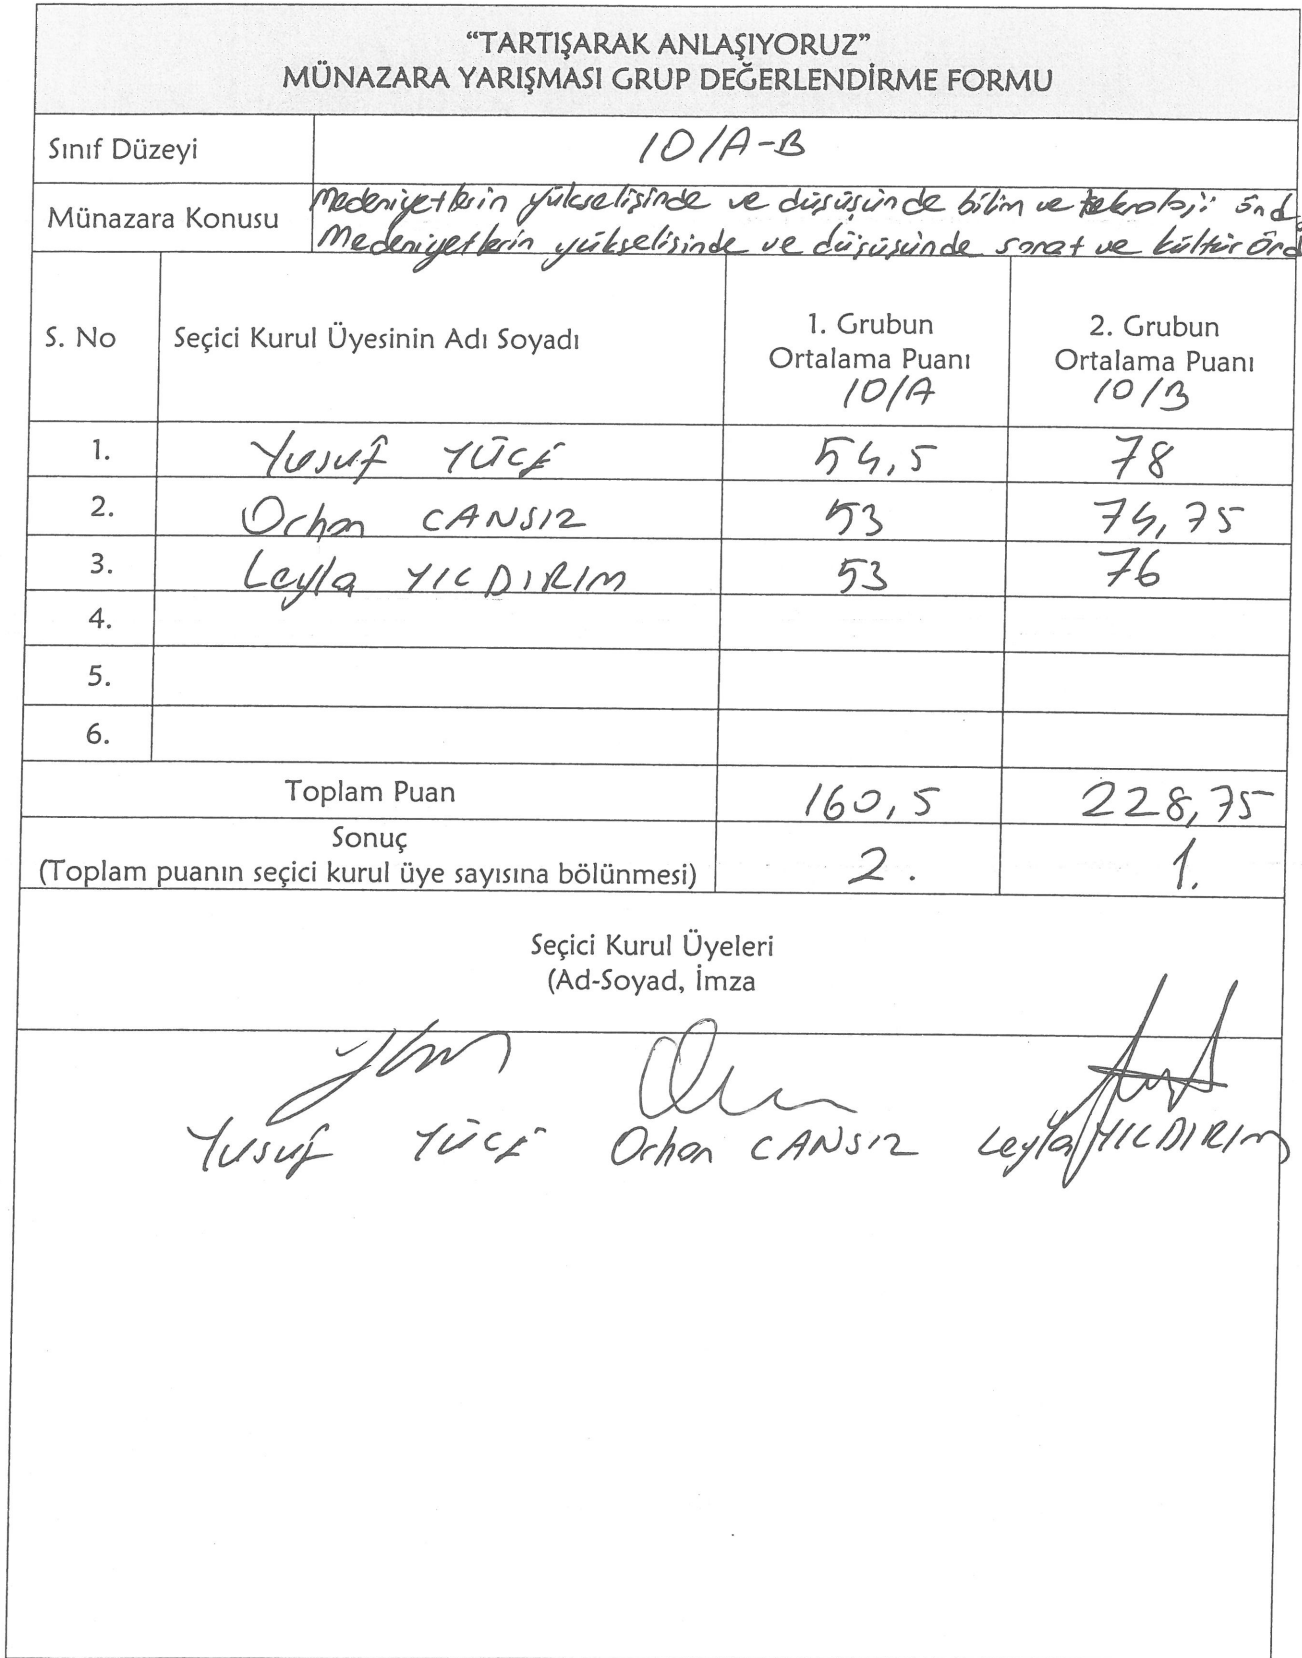 “TARTIŞARAK ANLAŞIYORUZ”
MÜNAZARA YARIŞMASI GRUP DEĞERLENDİRME FORMU
Sınıf Düzeyi 10/A-B
Münazara Konusu Medeniyetlerin yükselişinde ve düşüşünde bilim ve teknoloji önd
Medeniyetlerin yükselişinde ve düşüşünde sanat ve kültür önd
S. No Seçici Kurul Üyesinin Adı Soyadı 1. Grubun Ortalama Puanı 10/A 2. Grubun Ortalama Puanı 10/B
1. Yusuf YÜCE 54,5 78
2. Orhan CANSIZ 53 74,75
3. Leyla YILDIRIM 53 76
4.
5.
6.
Toplam Puan 160,5 228,75
Sonuç
(Toplam puanın seçici kurul üye sayısına bölünmesi) 2. 1.
Seçici Kurul Üyeleri
(Ad-Soyad, İmza
Yusuf YÜCE Orhan CANSIZ Leyla YILDIRIM